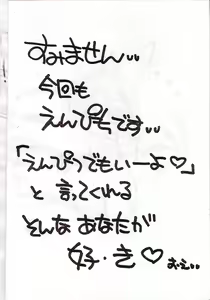 すみません..
今回も
えんぴつです..
「えんぴつでもいーよ♡」
と 言ってくれる
そんな あなたが
好・き♡